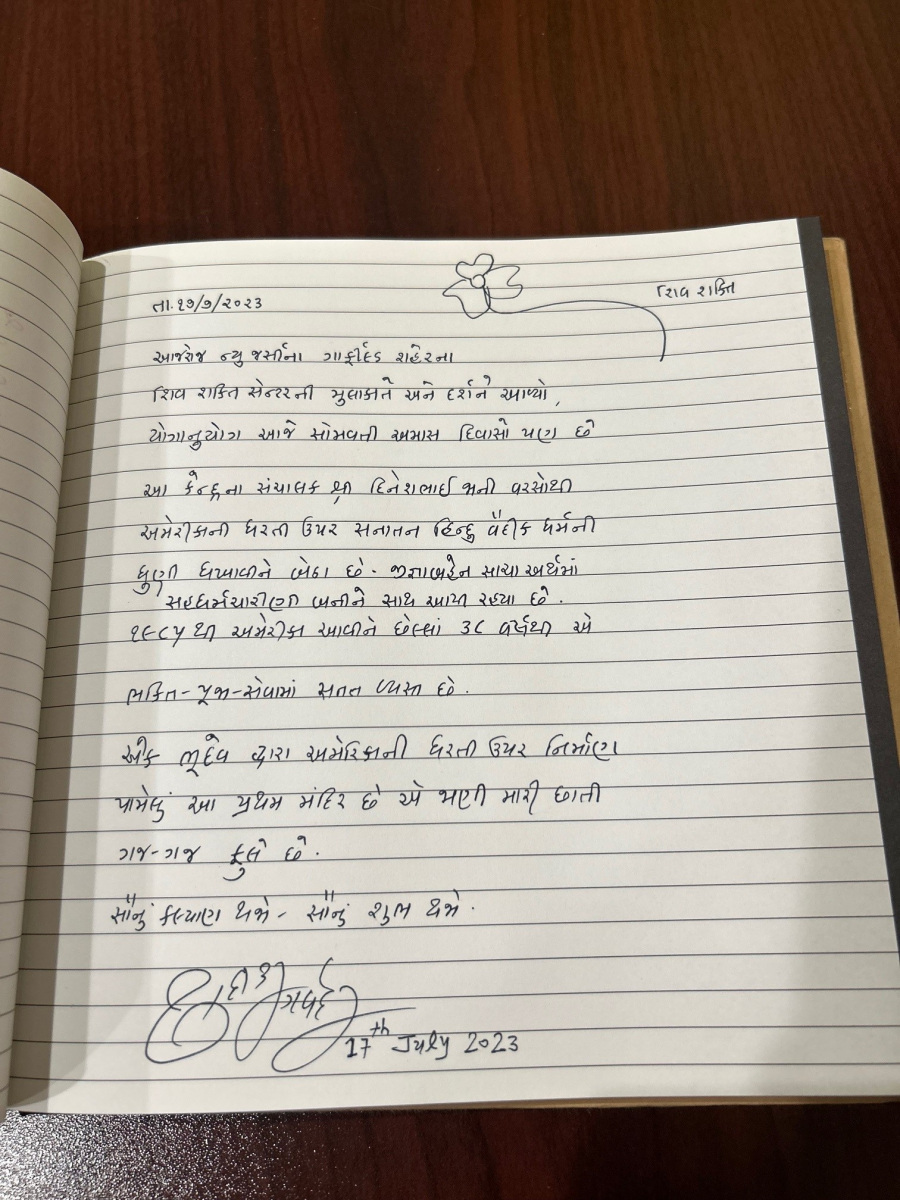 તા.૧૭/૭/૨૦૨૩
શિવ શક્તિ
આજરોજ ન્યુ જર્સીના ગાર્ફીલ્ડ શહેરના
શિવ શક્તિ સેન્ટરની મુલાકાતે અને દર્શને આવ્યો,
યોગાનુયોગ આજે સોમવતી અમાસ દિવાસો પણ છે
આ કેન્દ્રના સંચાલક શ્રી દિનેશભાઈ જાની વરસોથી
અમેરીકાની ધરતી ઉપર સનાતન હિન્દુ વૈદીક ધર્મની
ધુણી ધખાવીને બેઠા છે. જીજ્ઞાબહેન સાચા અર્થમાં
સહધર્મચારીણી બનીને સાથ આપી રહ્યા છે.
૧૯૮૫ થી અમેરીકા આવીને છેલ્લાં ૩૮ વર્ષથી એ
ભક્તિ-પૂજા-સેવામાં સતત વ્યસ્ત છે.
એક ભૂદેવ દ્વારા અમેરિકાની ધરતી ઉપર નિર્માણ
પામેલું આ પ્રથમ મંદિર છે એ જાણી મારી છાતી
ગજ-ગજ ફુલે છે.
સૌનું કલ્યાણ થજો - સૌનું શુભ થજો.
17th July 2023